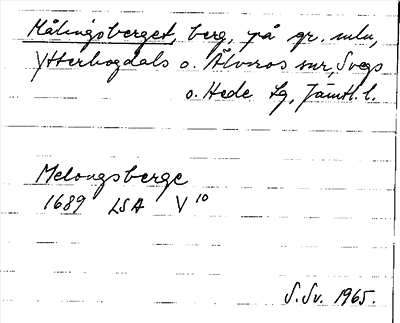 Målingsberget, berg, på gr. mln,
Ytterhogdals o. Älvros snr, Svegs
o. Hede tg, Jämtl. l.
Melongsberge
1689 LSA V 10
S. Sv. 1965.